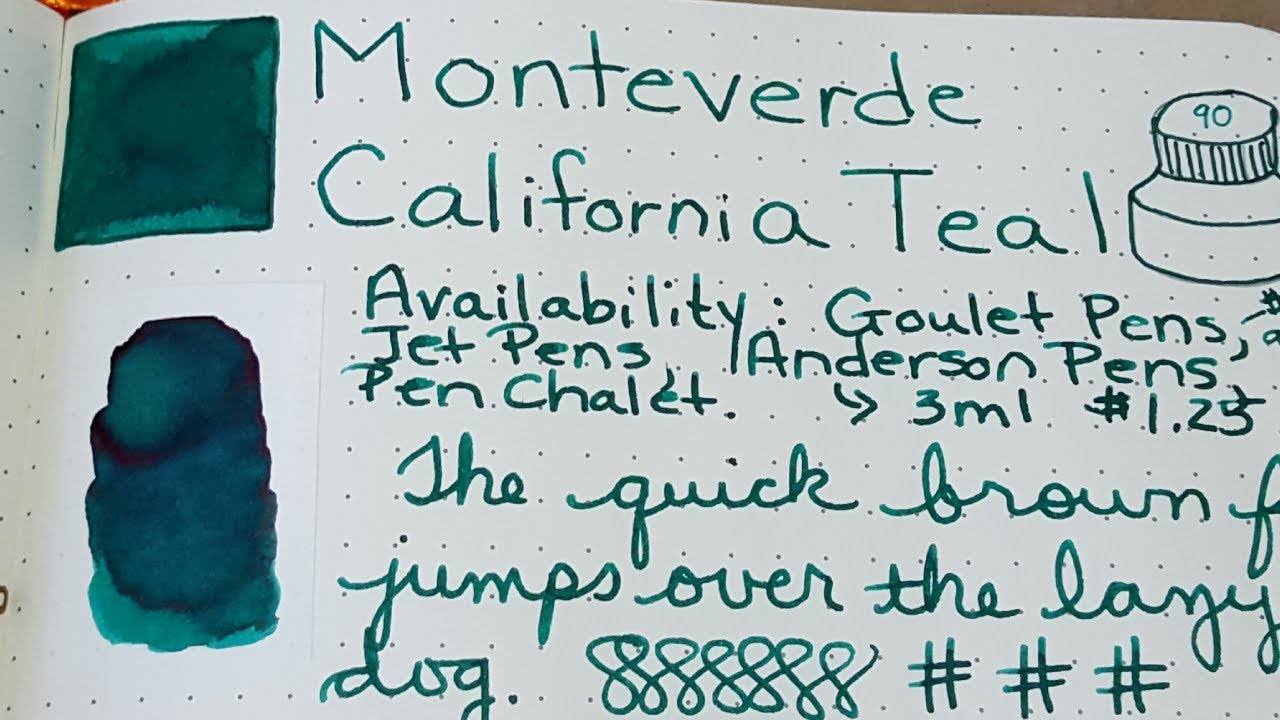 Monteverde
90
California Teal
Availability: Goulet Pens,
Jet Pens, Anderson Pens,
Pen Chalet. ↳ 3ml $1.25
The quick brown f
jumps over the lazy
dog. 8888888 # # #